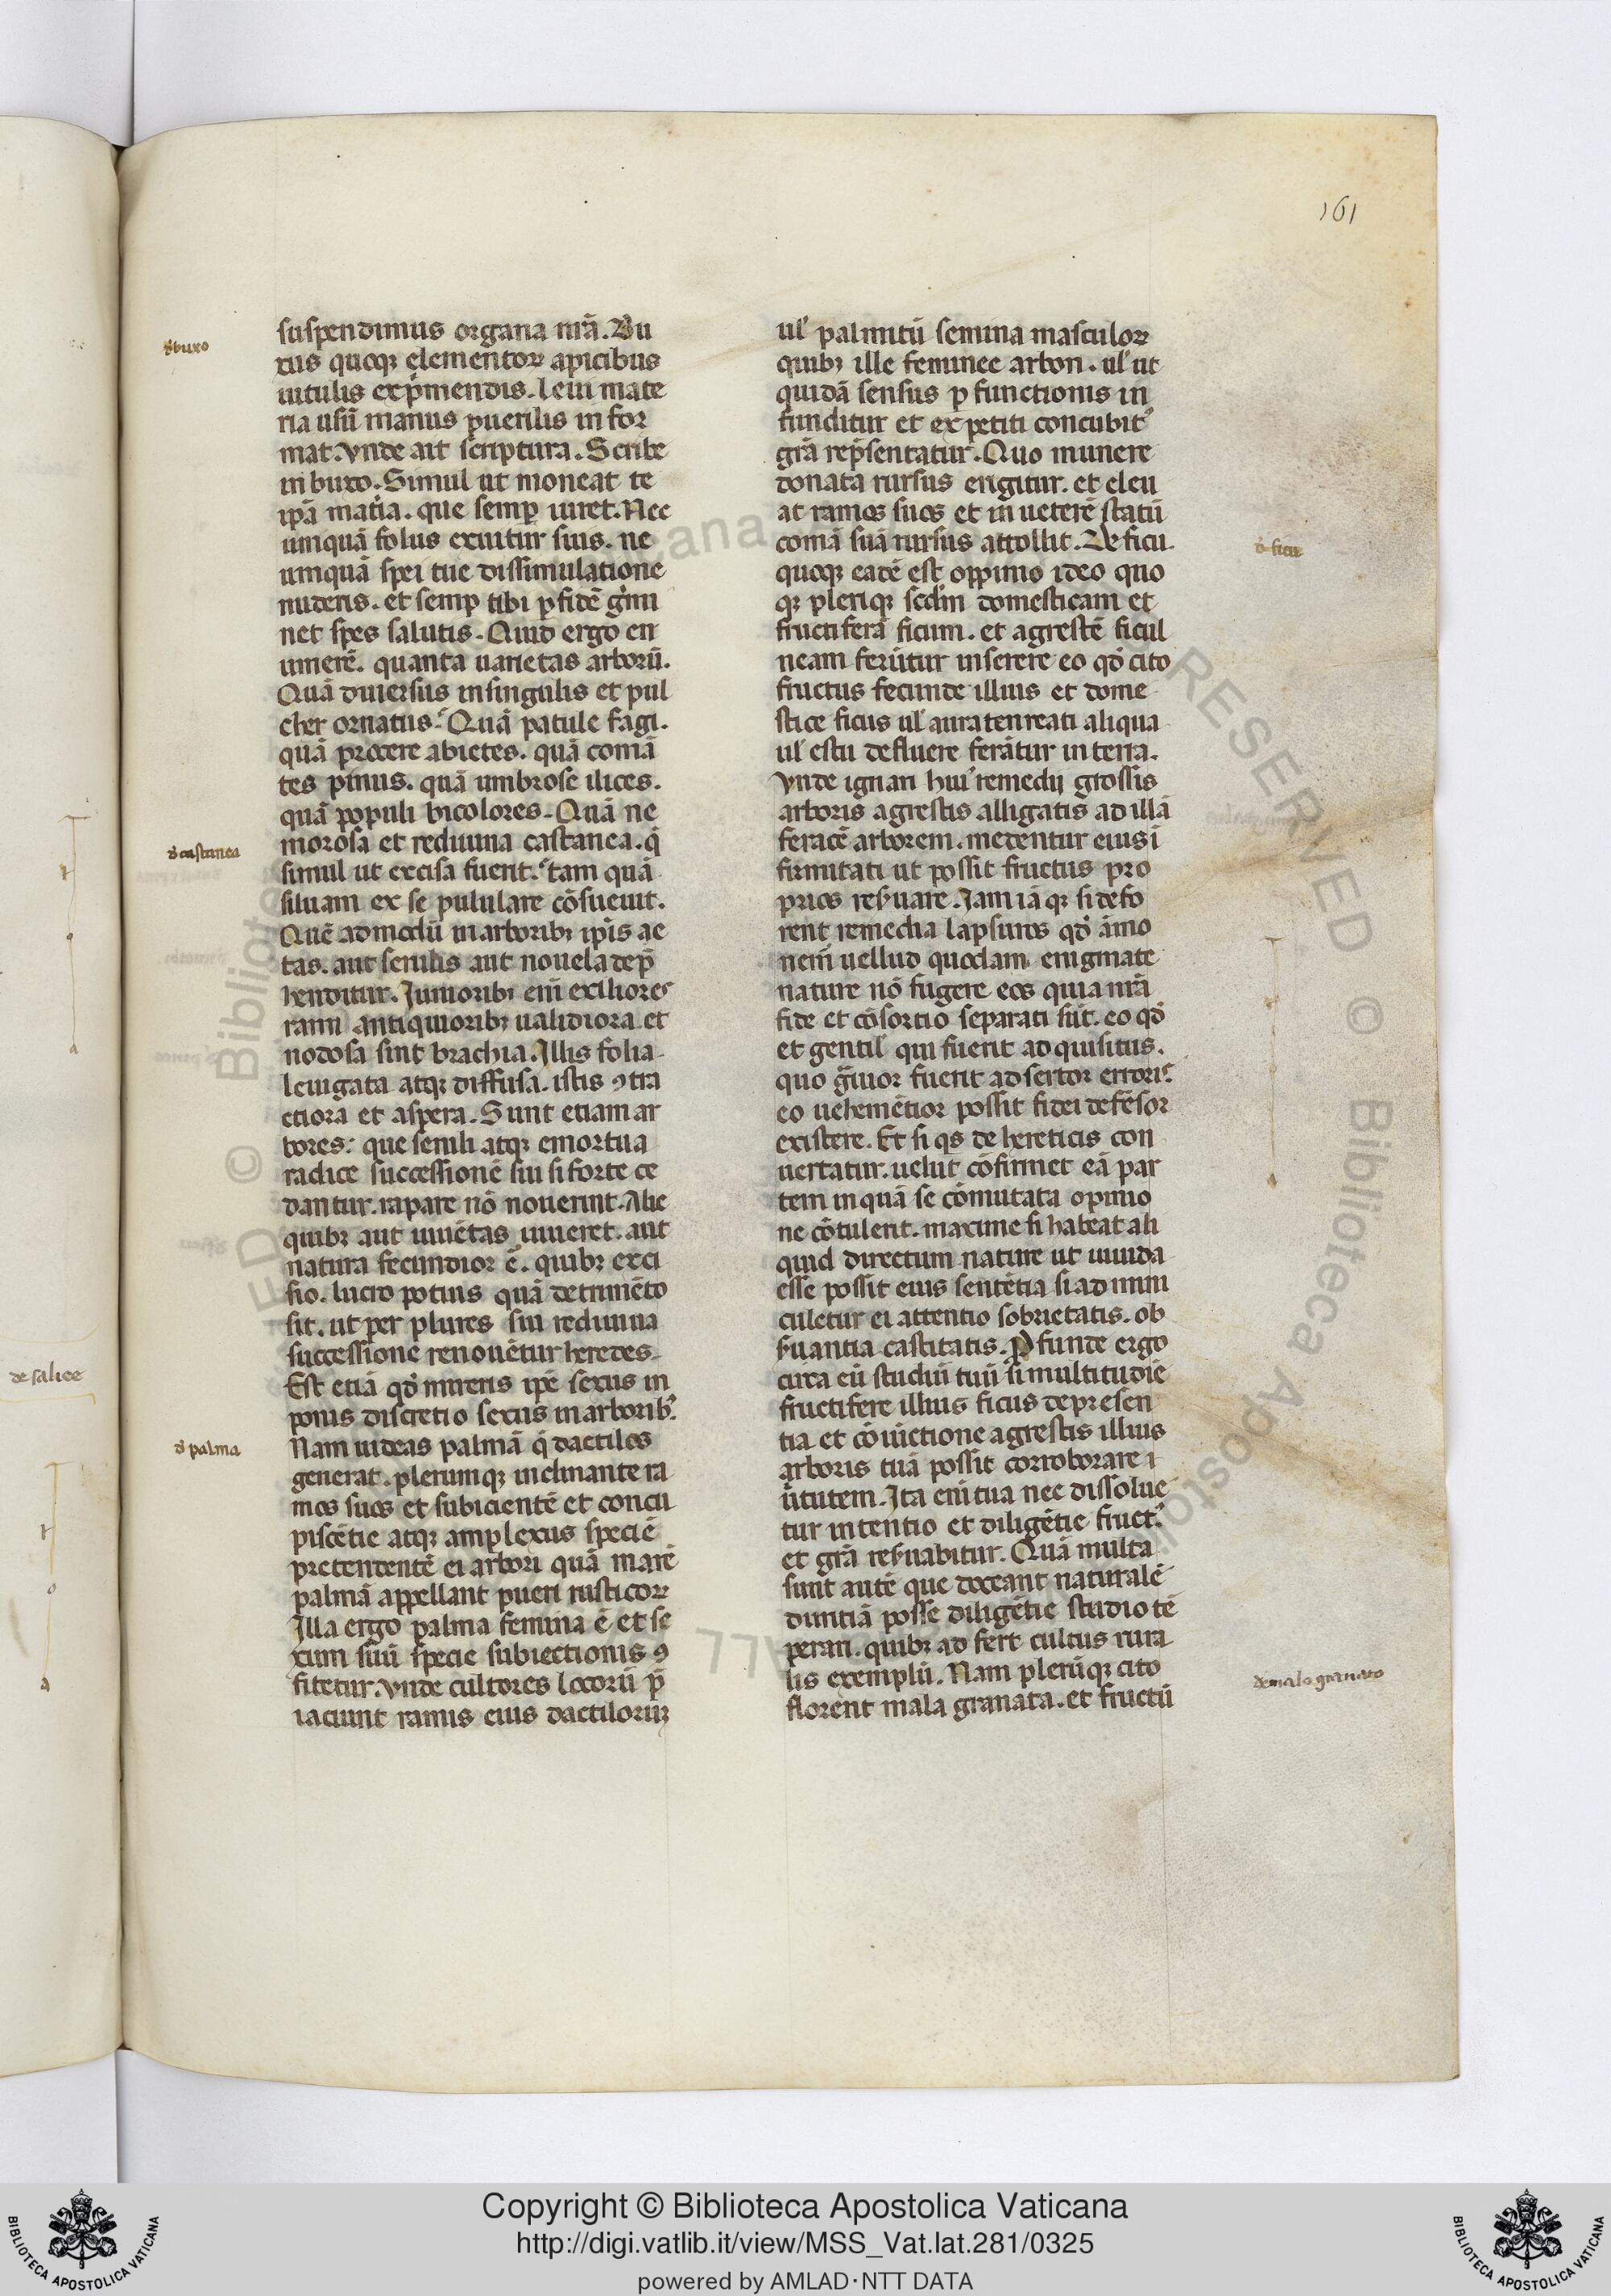 161
suspendimus organa nr̄a. Bu
xus quoqꝫ elementoꝝ apicibus
uitulis exp̄mendis. leui mate
ria usū manus puerilis infor
mat. Vnde ait scriptura. Scribe
in buxo. Simul ut moneat te
ip̄a mat̄ia. que semꝑ uiret. Nec
umquā folus exuitur suis. ne
umquā spei tue dissimulatione
nuderis. et semꝑ tibi ꝑ fidē g̓mi
net spes salutis. Quid ergo en
umerē. quanta uarietas arborū.
Quā diuersus insingulis et pul
cher ornatus. Quā patule fagi.
quā procere abietes. quā comā
tes pinus. quā umbrose ilices.
quā populi bicolores. Quā ne
morosa et rediuiua castanea. q̄
simul ut excisa fuerit. tam quā
siluam ex se pululare cōsueuit.
Quē admodū in arboribꝫ ip̄is ae
tas. aut senilis aut nouela dep̄
henditur. Junioribꝫ eni exiliores
rami antiquioribꝫ ualidiora et
nodosa sint brachia. Illis folia
leuigata atqꝫ diffusa. istis ꝯtra
ctiora et aspera. Sunt etiam ar
bores: que senili atqꝫ emortua
radice successionē sui si forte ce
dantur. rapare nō nouerint. Alie
quibꝫ aut iuuētas uiueret. aut
natura fecundior ē. quibꝫ exci
sio. lucro potius quā detrimēto
sit. ut per plures sui rediuiua
successione renouētur heredes.
Est etiā qd̓ mireris ip̄e sexus in
pomis discretio sexus in arboribꝰ.
Nam uideas palmā q̄ dactilos
generat. plerumqꝫ inclinante ra
mos suos et subicientē et concu
piscētie atqꝫ amplexus speciē
pretendentē ei arbori quā marē
palmā appellant pueri rusticoꝝ
Illa ergo palma femina ē et se
xum suū specie subiectionis ꝯ
fitetur. Vnde cultores locorū p̄
iaciunt ramis eius dactiloruꝫ
ul̓ palmitū semina masculoꝝ
quibꝫ ille feminee arbori. ul̓ ut
quidā sensus ꝑfunctionis in
funditur et expetiti concubitꝰ
grā repr̄sentatur. Quo munere
donata rursus erigitur. et eleu
at ramos suos et in ueterē statū
comā suā rursus attollit. De ficu
quoqꝫ eadē est oppinio ideo quo
qꝫ pleriqꝫ secꝉm domesticam et
fructiferā ficum. et agrestē ficul
neam ferūtur inserere eo qd̓ cito
fructus fecunde illius et dome
stice ficus ul̓ aura tenreati aliqua
ul̓ estu defluere ferātur in terra.
Vnde ignari huiꝰ remedij grossis
arboris agrestis alligatis ad illā
feracē arborem. medentur eius i
firmitati ut possit fructus pro
prios reẜuare. Jam iā qꝫ si defo
rent remedia lapsuros qd̓ āmo
nem̄ uellud quodam enigmate
nature nō fugere eos qui a nr̄a
fide et cōsortio separati sūt. eo qd̓
et gentil̓ qui fuerit adquisitus.
quo g̓uior fuerit adsertor erroris.
eo uehemētior possit fidei defēsor
existere. Et si qs de hereticis con
uertatur. uelut cōfirmet eā par
tem in quā se cōmutata opinio
ne cōtulerit. maxime si habeat ali
quid directum nature ut uiuida
esse possit eius sentētia si ad mini
culetur ei attentio sobrietatis. ob
ẜuantia castitatis. Ꝓfunde ergo
circa eū studiū tuū si multitudiē
fructifere illius ficus depresen
tia et cōuictione agrestis illius
arboris tuā possit corroborare i
ūtutem. Ita eni tua nec dissolue
tur intentio et diligētie fructꝰ
et grā reẜuabitur. Quā multa
sunt autē que doceant naturalē
duritiā posse diligētie studio tē
perari. quibꝫ ad fert cultus rura
lis exemplū. Nam plerūqꝫ cito
florent mala granata. et fructū
d̓ buxo
d̓ castanea
d̓ palma
de salice
d̓ ficu
de malo granato
Copyright © Biblioteca Apostolica Vaticana
http://digi.vatlib.it/view/MSS_Vat.lat.281/0325
powered by AMLAD·NTT DATA
BIBLIOTECA APOSTOLICA VATICANA
BIBLIOTECA APOSTOLICA VATICANA